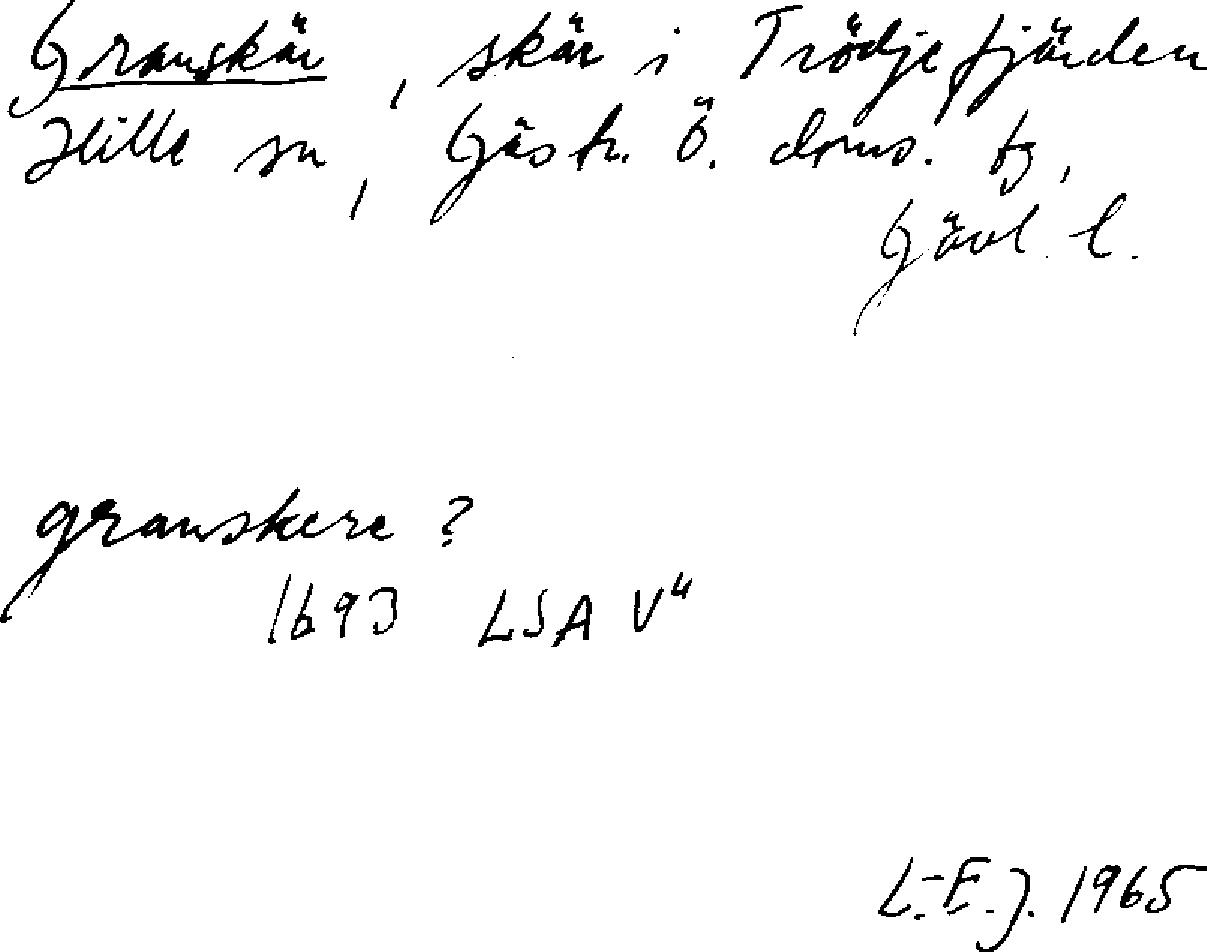 Granskär, skär i Trödjefjärden
Hille sn, Gästr. Ö. doms. tg,
Gävl. l.
granskere ?
1693 LSA V"
L.-E. J. 1965